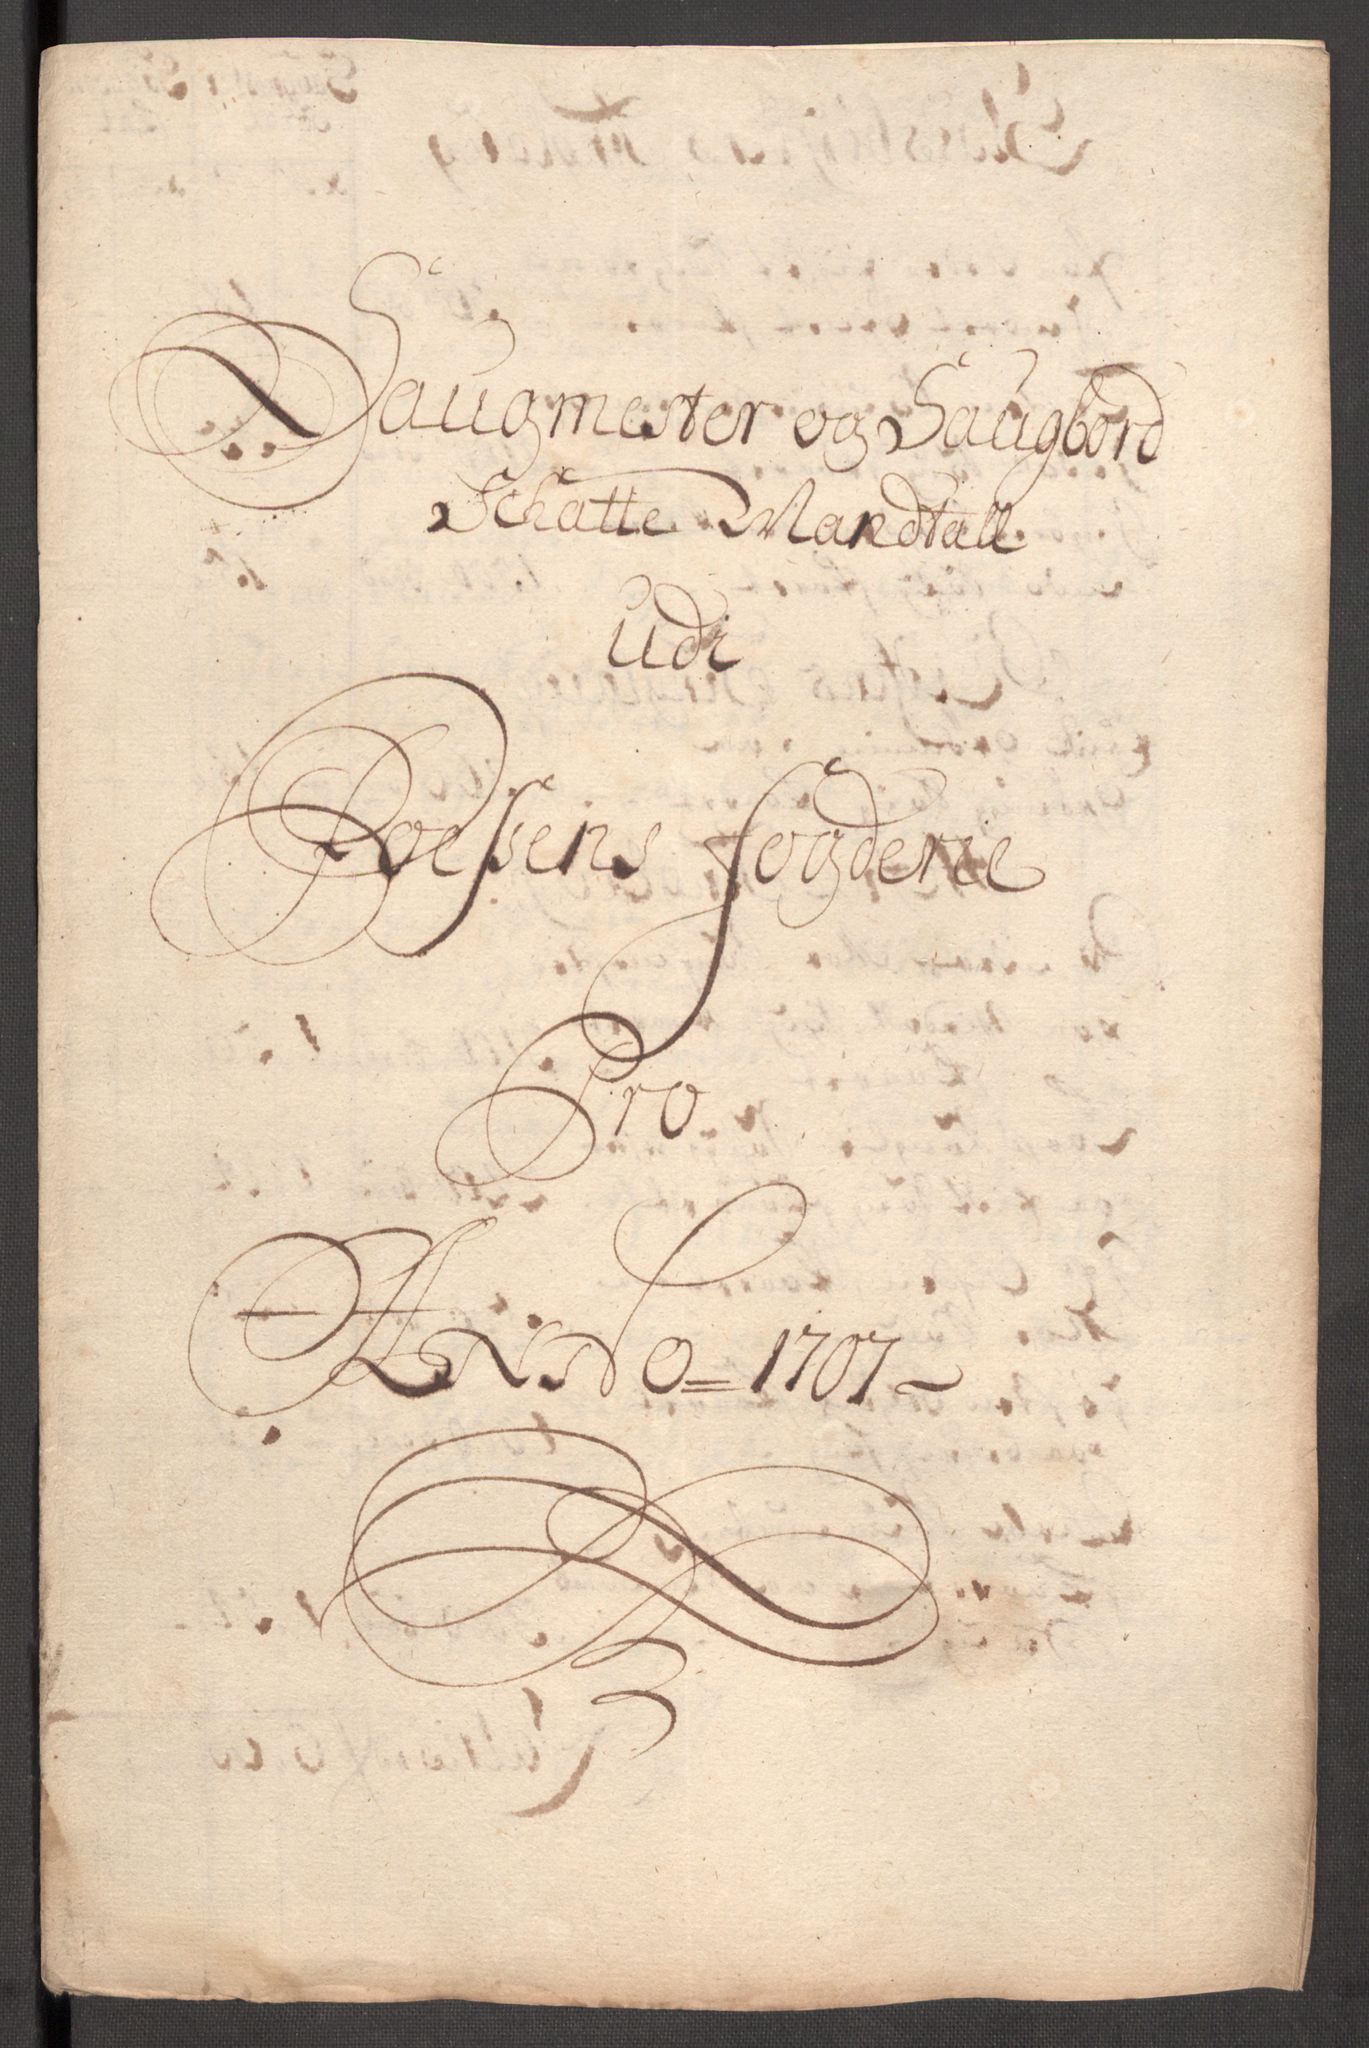 Saugmester og Saugbord
Schatte Mandtall
udi
Foesens fogderie
Pro
Anno = 1707 ~